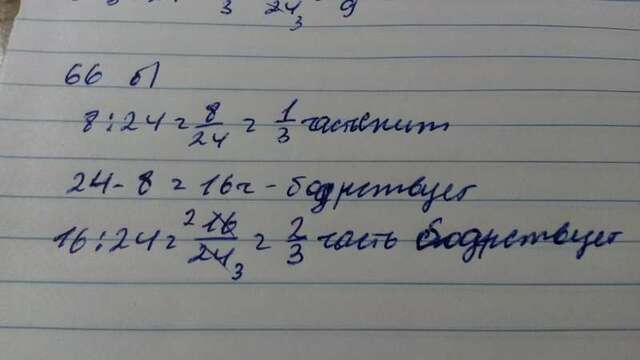 66 б)
8:24 = 8/24 = 1/3 часть спит
24 - 8 = 16ч - бодрствует
16:24 = 16/24 = 2/3 часть бодрствует